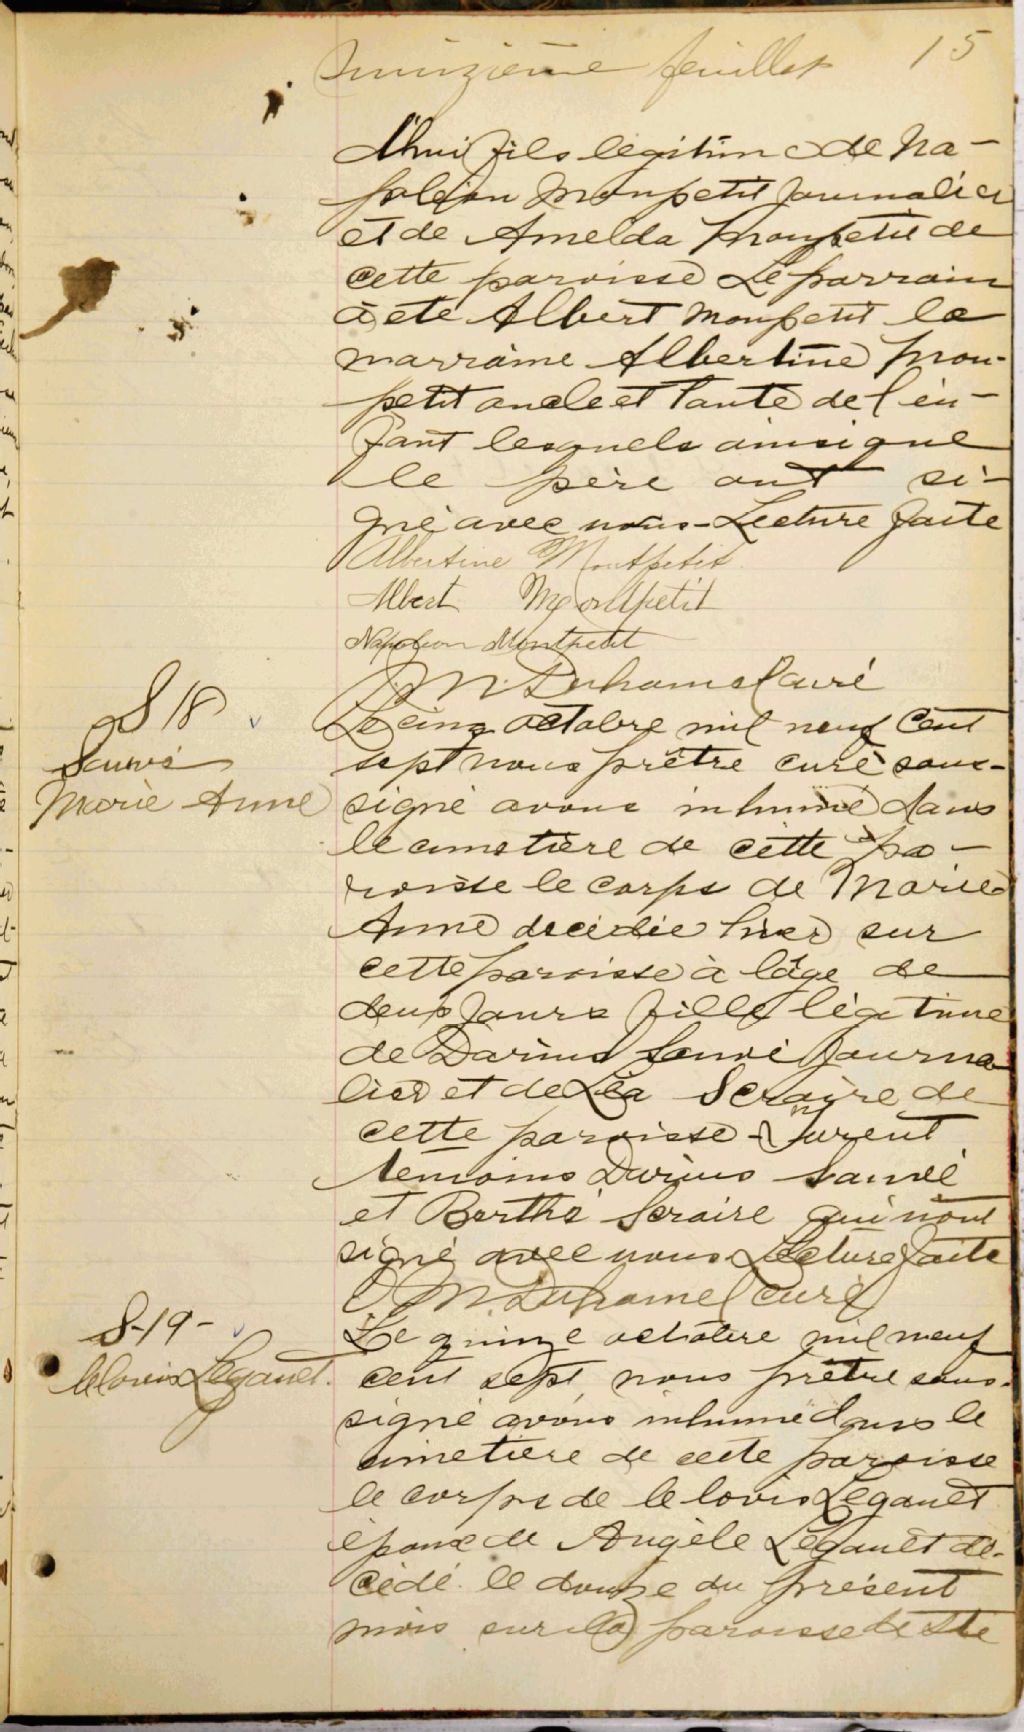 quinzième feuillet 15
d'hui fils légitime de Na-
poléon Monpetit journalier
et de Amelda Monpetit de
cette paroisse Le parrain
à été Albert Monpetit la
marraine Albertine Mon-
petit oncle et tante de l'en-
fant lesquels ainsi que
le père ont si-
gné avec nous - Lecture faite
Albertine Montpetit
Albert Montpetit
Napoleon Montpetit
M. Duhamel curé
S 18
Sauvé
Marie Anne
Le cinq octobre mil neuf cent
sept nous prêtre curé sous-
signé avons inhumé dans
le cimetière de cette pa-
roisse le corps de Marie
Anne décédée hier sur
cette paroisse à l'âge de
deux jours fille légitime
de Darius Sauvé journa-
lier et de Léa Scraire de
cette paroisse - Furent
témoins Darius Sauvé
et Berthe Scraire qui n'ont
signé avec nous Lecture faite
M. Duhamel curé
S-19-
Clovis Legault.
Le quinze octobre mil neuf
cent sept nous prêtre sous-
signé avons inhumé dans le
cimetière de cette paroisse
le corps de Clovis Legault
époux de Angèle Legault dé-
cédé le douze du présent
mois sur la paroisse de Ste